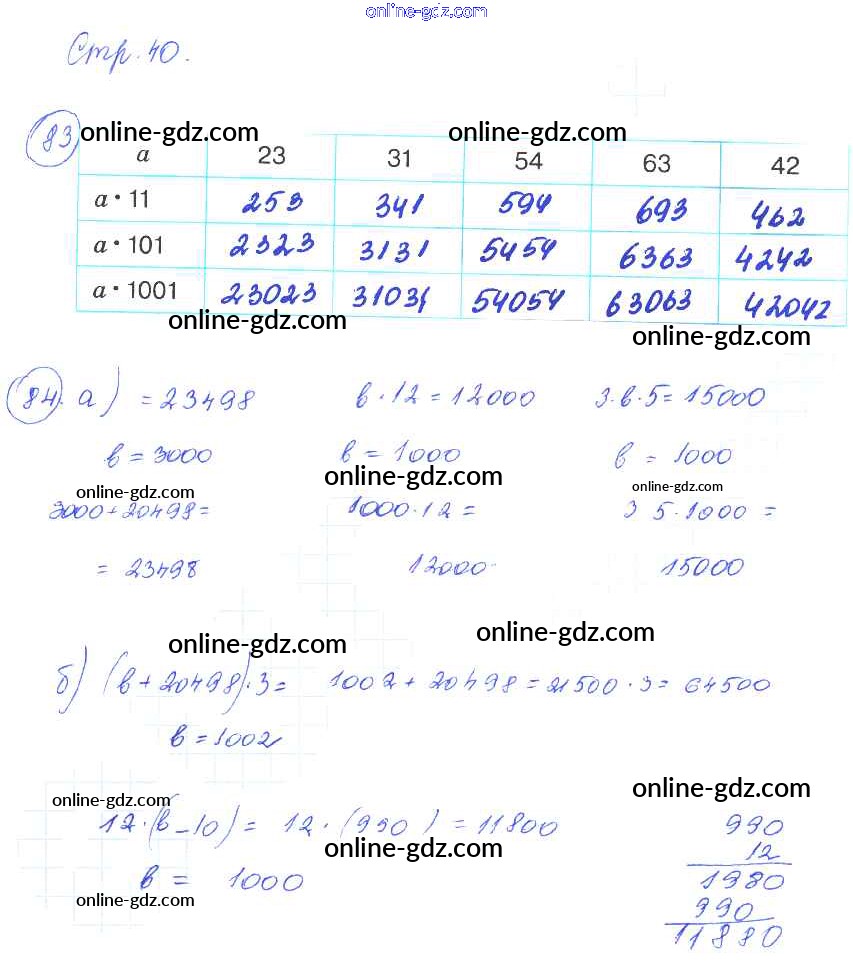 online-gdz.com
Стр. 40.
83 online-gdz.com online-gdz.com
a 23 31 54 63 42
a · 11 253 341 594 693 462
a · 101 2323 3131 5454 6363 4242
a · 1001 23023 31031 54054 63063 42042
online-gdz.com online-gdz.com
84. а) = 23498 в · 12 = 12000 3 · в · 5 = 15000
в = 3000 в = 1000 в = 1000
online-gdz.com online-gdz.com online-gdz.com
3000 + 20498 = 1000 · 12 = 3 5 · 1000 =
= 23498 12000 15000
online-gdz.com online-gdz.com
б) (в + 20498) · 3 = 1002 + 20498 = 21500 · 3 = 64500
в = 1002
online-gdz.com online-gdz.com
12 · (в – 10) = 12 · (990) = 11800 990
online-gdz.com 12
в = 1000 1980
online-gdz.com 990
11880